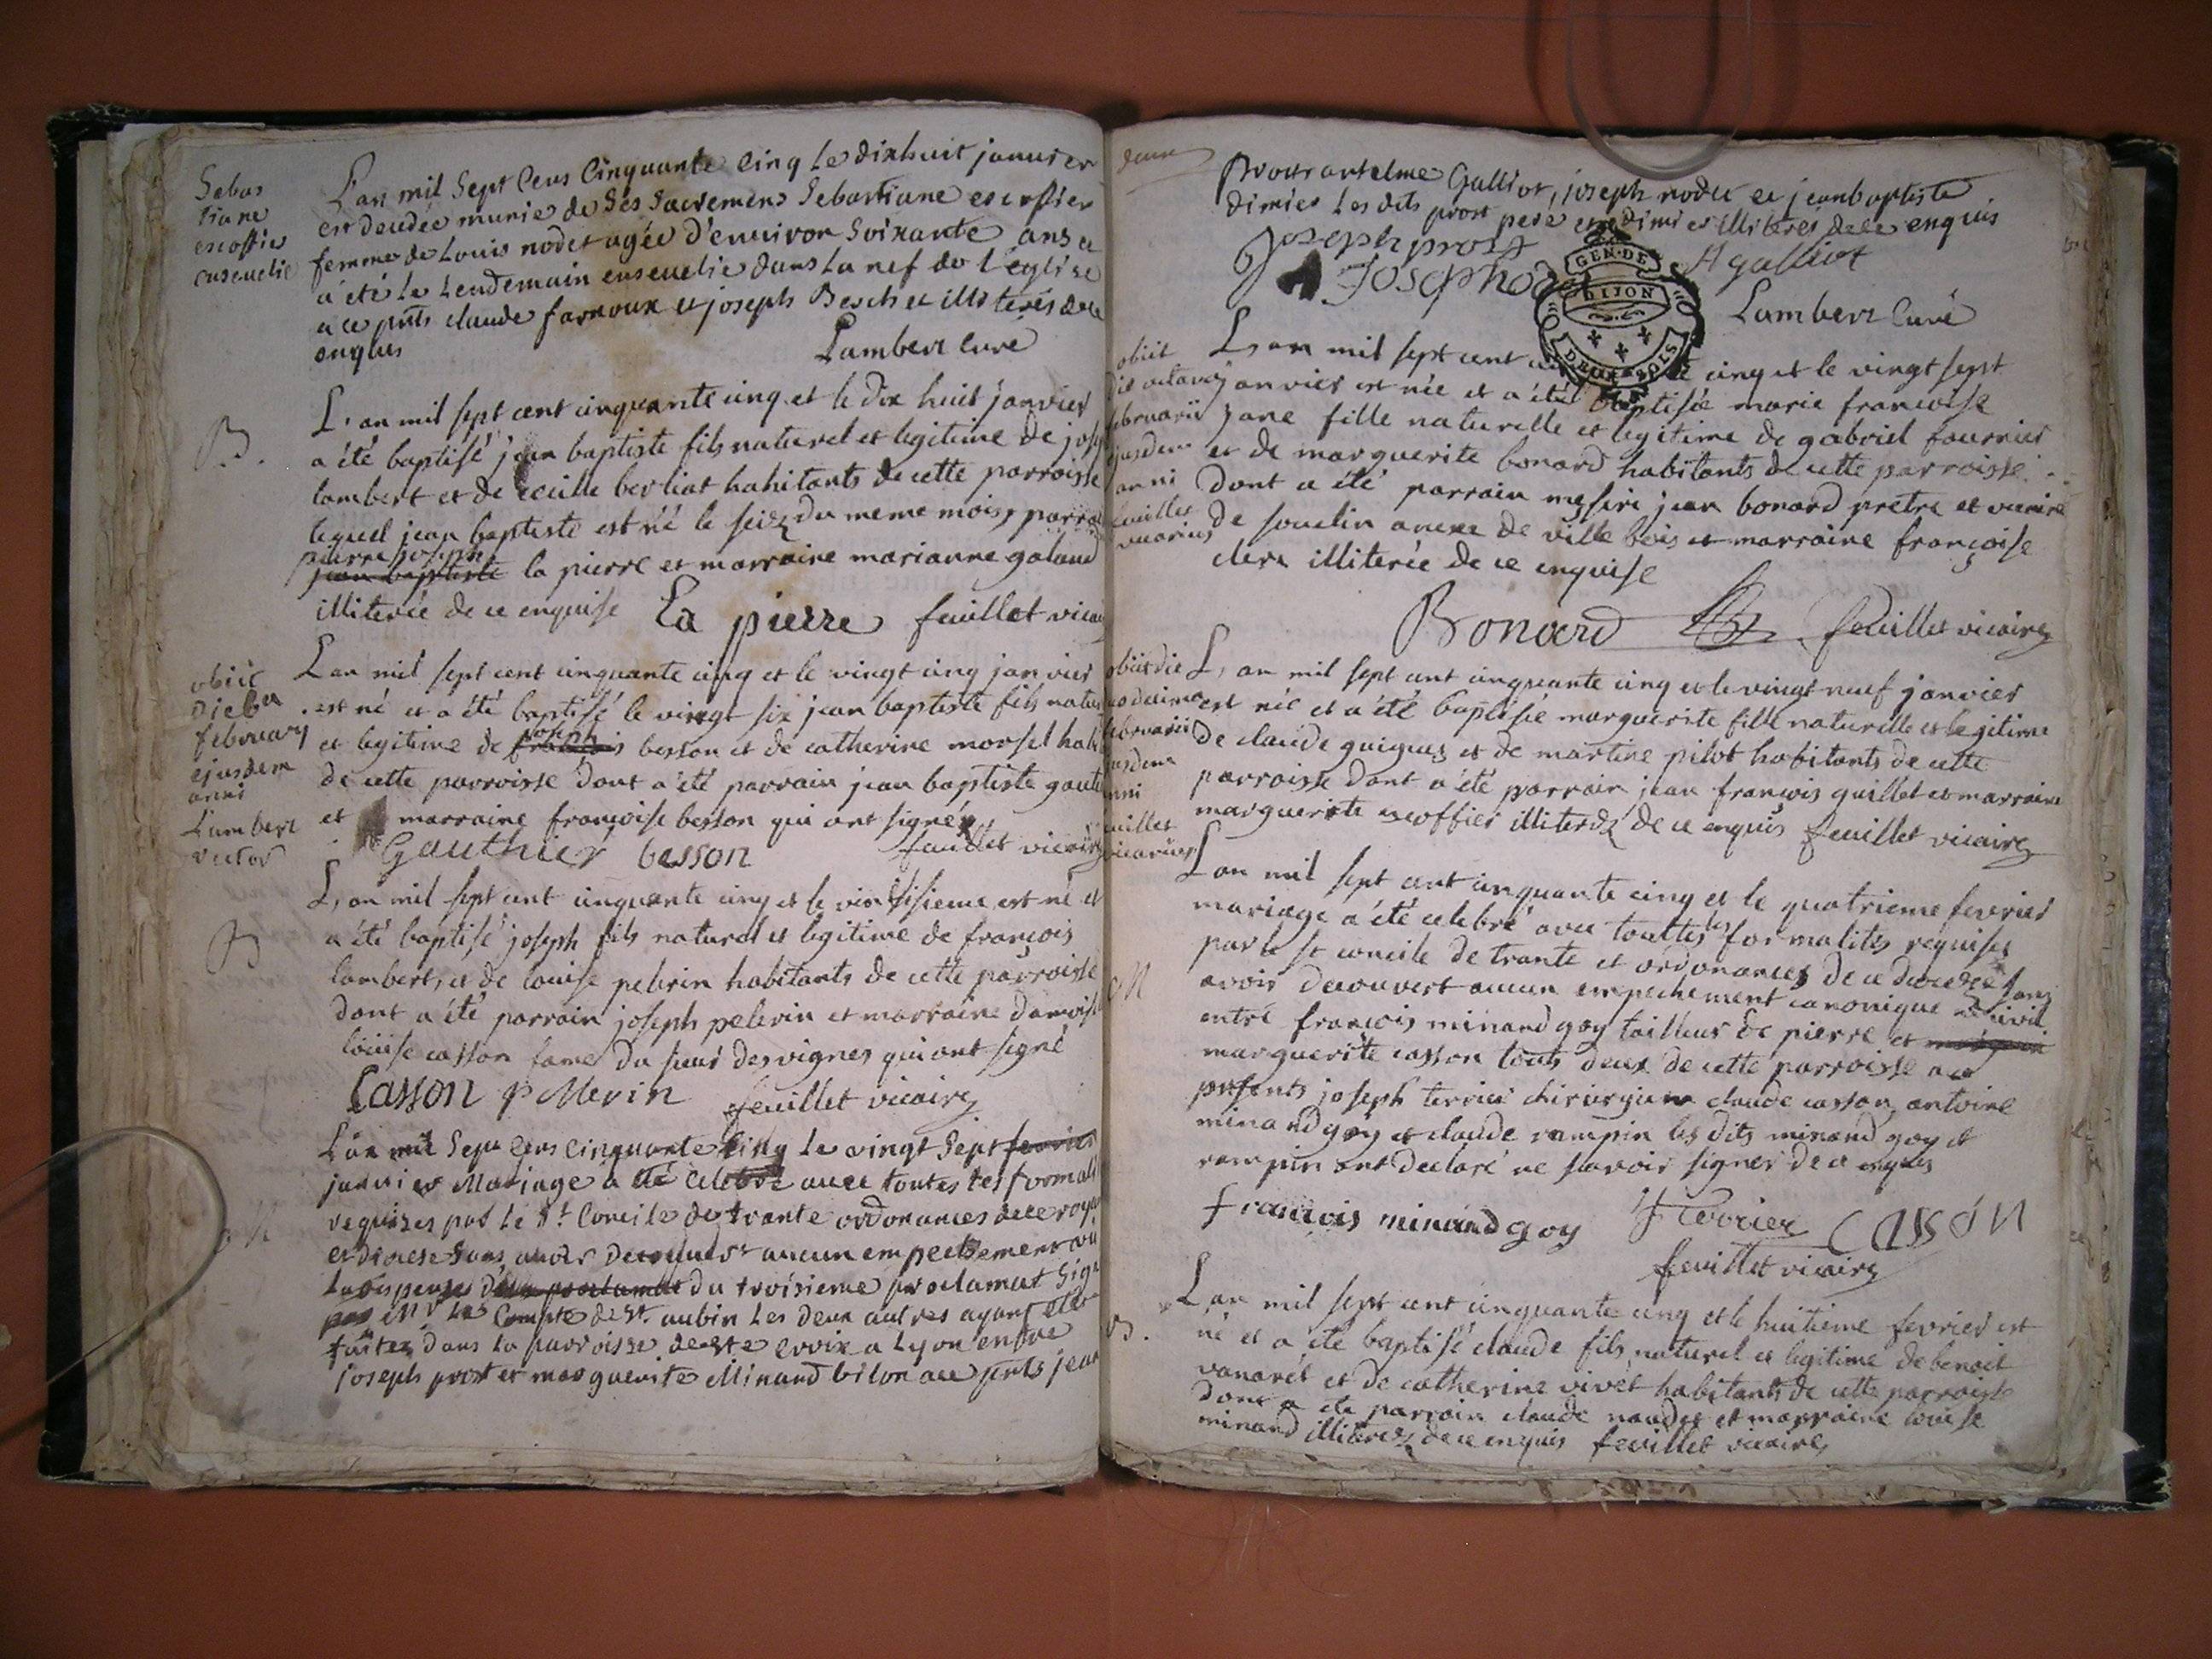 Sebas
tiane
escoffier
ensevelie
L'an mil Sept Cens Cinquante Cinq Le dixhuit janvier
est decedée munie de Ses Sacremens Sebastiane escoffier
femme de Louis nodet agée d'environ Soixante ans et
a été Le Lendemain ensevelie dans La nef de l'église
a ce pnts claude farnoux et joseph Besch et illiterés de ce
enquis Lambert Curé
B.
L'an mil sept cent cinquante cinq et le dix huit janvier
a été baptisé jean baptiste fils naturel et legitime de jose
lambert et de cecille berliat habitants de cette parroisse
lequel jean baptiste est né le seiz du meme mois, parra
pierre joseph
jean baptiste la pierre et marraine marianne galand
illiterée de ce enquise La pierre feuillet vicai
obiit
die 6a
february
ejusdem
anni
Lambert
rector
L'an mil sept cent cinquante cinq et le vingt cinq janvier
est né et a été baptisé le vingt six jean baptiste fils natu
et legitime de joseph besson et de catherine morsel hab
de cette parroisse dont a été parrain jean baptiste gaut
et marraine françoise besson qui ont signé
Gauthier besson feuillet vicaire
B
L'an mil sept cent cinquante cinq et le vint sisieme est né et
a été baptisé joseph fils naturel et legitime de françois
lambert, et de louise pelerin habitants de cette parroisse
dont a été parrain joseph pelerin et marraine damoise
louise casson fame du sieur desvignes qui ont signé
Casson Pellerin feuillet vicaire
M
L'an mil Sept Cens Cinquante Cinq Le vingt Sept fevrier
janvier Mariage a été Celebré avec toutes les formali
requises par Le St Concile de trante ordonances de ce roya
et diocese Sans avoir Decouvert aucun empechement
La dispense du troisieme proclamat Sign
par Mr Le Compte de St. aubin Les deux autres ayant été
faites dans La parroisse de Ste croix a Lyon entre
joseph prost et marguerite Minand bilon a ce pnts jean
Prost antelme Galliot, joseph nodet et jean baptiste
dimier Les dits prost pere et dimier illiterés de ce enquis
Joseph prost
Joseph nodet A galliot
GEN. DE
DIJON
DEUX SOLS
Lambert Curé
obiit
die octava
februarii
ejusdem
anni
feuillet
vicarius
L'an mil sept cent cinq et le vingt sept
janvier est née et a été baptisée marie françoise
jane fille naturelle et legitime de gabriel fournier
et de marguerite bonard habitants de cette parroisse.
dont a été parrain messire jean bonard pretre et vicaire
de souclin anexe de ville bois et marraine françoise
clerc illiterée de ce enquise
Bonard feuillet vicaire
obiit die
februarii
ejusdem
anni
feuillet
vicarius
L'an mil sept cent cinquante cinq et le vingt neuf janvier
est née et a été baptisée marguerite fille naturelle et legitime
de claude guigues et de martine pilot habitants de cette
parroisse dont a été parrain jean françois guillet et marraine
marguerite escoffier illiterés de ce enquis feuillet vicaire
M
L'an mil sept cent cinquante cinq et le quatrieme fevrier
mariage a été celebré avec touttes les formalités requises
par le st concile de trante et ordonances de ce diocese sans
avoir decouvert aucun empechement canonique et civil
entre françois minand goy tailleur de pierre et
marguerite casson touts deux de cette parroisse a ce
presents joseph terrier chirurgien claude casson antoine
minand goy et claude rampin les dits minand goy et
rampin ont declaré ne savoir signer de ce enquis
françois minand goy J terrier CASSON
feuillet vicaire
B.
L'an mil sept cent cinquante cinq et le huitieme fevrier est
né et a été baptisé claude fils naturel et legitime de benoit
vanarel et de catherine vivet habitants de cette parroisse
dont a été parrain claude naudet et marraine louise
minand illiterés de ce enquis feuillet vicaire